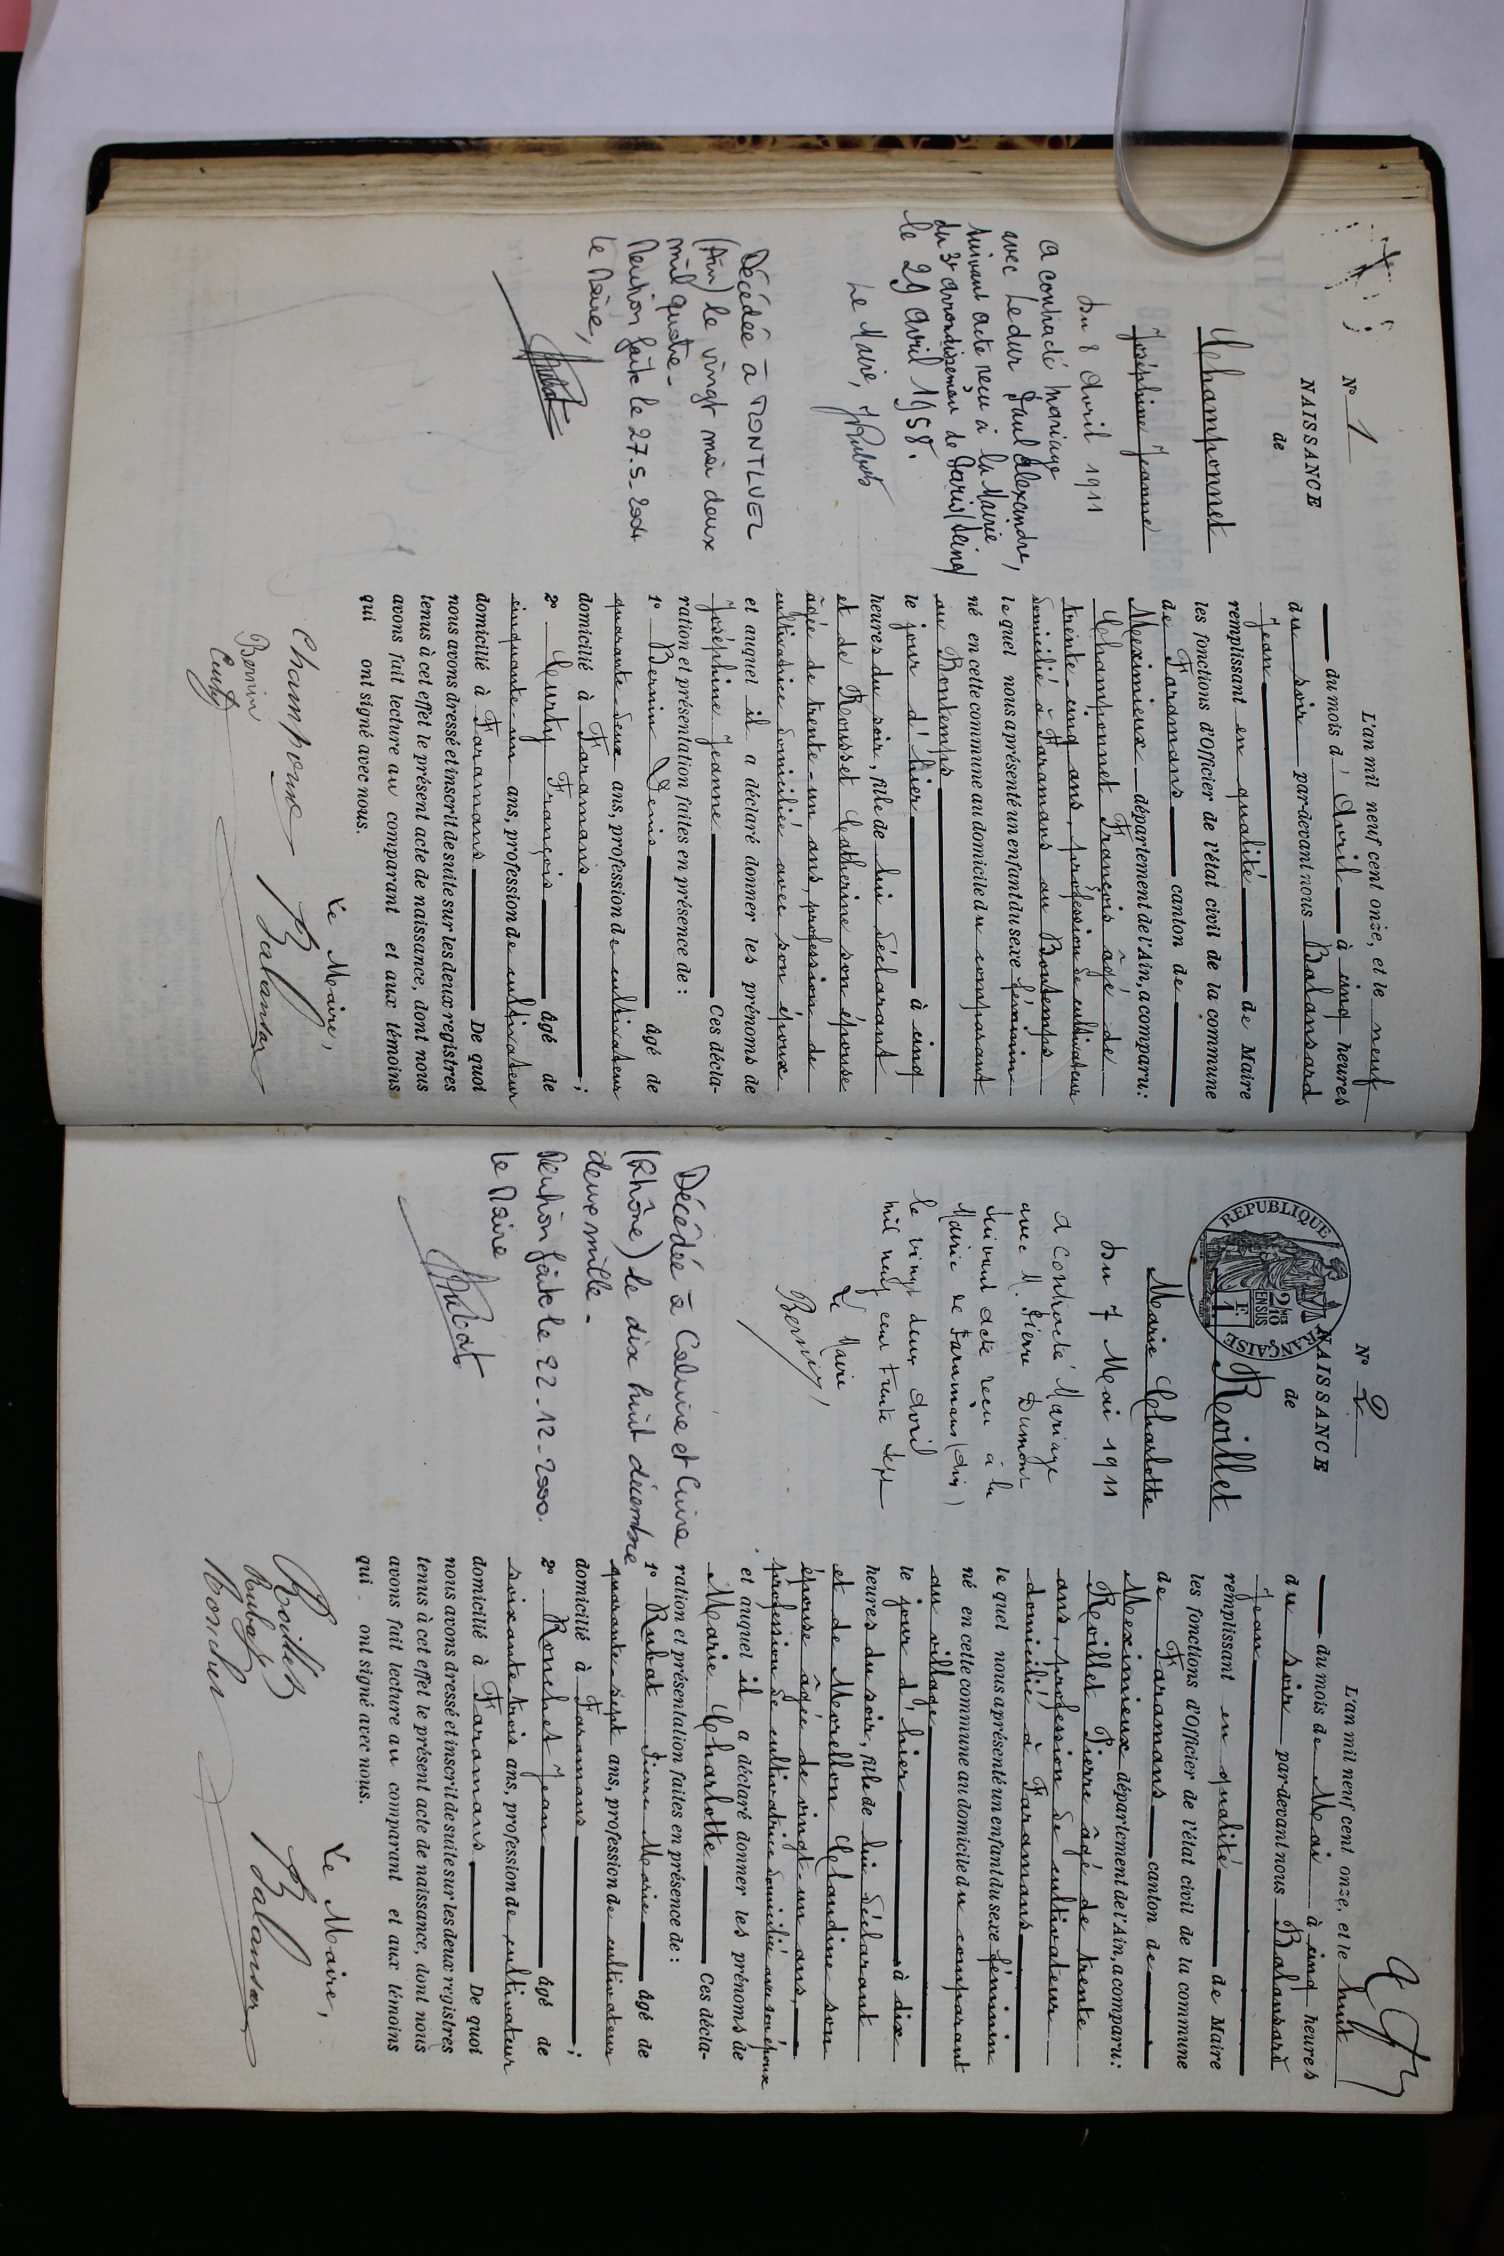 N° 1
NAISSANCE
de
Champonnet
Joséphine Jeanne
Du 8 Avril 1911
a contracté mariage
avec Ledur Paul Alexandre,
suivant acte reçu à la Mairie
du 3e arrondissement de Paris (Seine)
le 29 avril 1958.
Le Maire,
Décédée à MONTLUEL
(Ain) le vingt mai deux
mil quatre -
Mention faite le 27.5.2004
Le Maire,
L'an mil neuf cent onze, et le neuf
du mois d' Avril à cinq heures
du soir par-devant nous Balansard
Jean
remplissant en qualité de Maire
les fonctions d'Officier de l'état civil de la commune
de Faramans canton de
Meximieux département de l'Ain, a comparu:
Champonnet François âgé de
trente cinq ans, profession de cultivateur
domicilié à Faramans au Bontemps
lequel nous a présenté un enfant du sexe féminin
né en cette commune au domicile du comparant
au Bontemps
le jour d'hier à cinq
heures du soir, fille de lui déclarant
et de Rousset Catherine son épouse
âgée de trente-un ans, profession de
cultivatrice domiciliée avec son époux
et auquel il a déclaré donner les prénoms de
Joséphine Jeanne Ces décla-
ration et présentation faites en présence de :
1° Bernin Denis âgé de
quarante deux ans, profession de cultivateur
domicilié à Faramans ;
2° Curty François âgé de
cinquante-un ans, profession de cultivateur
domicilié à Faramans De quoi
nous avons dressé et inscrit de suite sur les deux registres
tenus à cet effet le présent acte de naissance, dont nous
avons fait lecture au comparant et aux témoins
qui ont signé avec nous.
Le Maire,
Bernin
Curty
Balansard
N° 2
NAISSANCE
de
REPUBLIQUE FRANÇAISE
Roillet
Marie Charlotte
Du 7 Mai 1911
a contracté Mariage
avec M. Pierre Dumont
suivant acte reçu à la
Mairie de Faramans (Ain)
le vingt deux Avril
mil neuf cent trente sept
Le Maire
Bernin
Décédée à Caluire et Cuire
(Rhône) le dix huit décembre
deux mille -
Mention faite le 22-12-2000.
Le Maire
L'an mil neuf cent onze, et le huit
du mois de Mai à cinq heures
du soir par-devant nous Balansard
Jean
remplissant en qualité de Maire
les fonctions d'Officier de l'état civil de la commune
de Faramans canton de
Meximieux département de l'Ain, a comparu:
Roillet Pierre âgé de trente
ans, profession de cultivateur
domicilié à Faramans
lequel nous a présenté un enfant du sexe féminin
né en cette commune au domicile du comparant
au village
le jour d'hier à dix
heures du soir, fille de lui déclarant
et de Morellon Claudine son
épouse âgée de vingt-un ans,
profession de cultivatrice domiciliée avec son époux
et auquel il a déclaré donner les prénoms de
Marie Charlotte Ces décla-
ration et présentation faites en présence de :
1° Rubat Marie âgé de
quarante-sept ans, profession de cultivateur
domicilié à Faramans ;
2° Ronchet Jean âgé de
soixante trois ans, profession de cultivateur
domicilié à Faramans De quoi
nous avons dressé et inscrit de suite sur les deux registres
tenus à cet effet le présent acte de naissance, dont nous
avons fait lecture au comparant et aux témoins
qui ont signé avec nous.
Le Maire,
Roillet
Rubat
Balansard